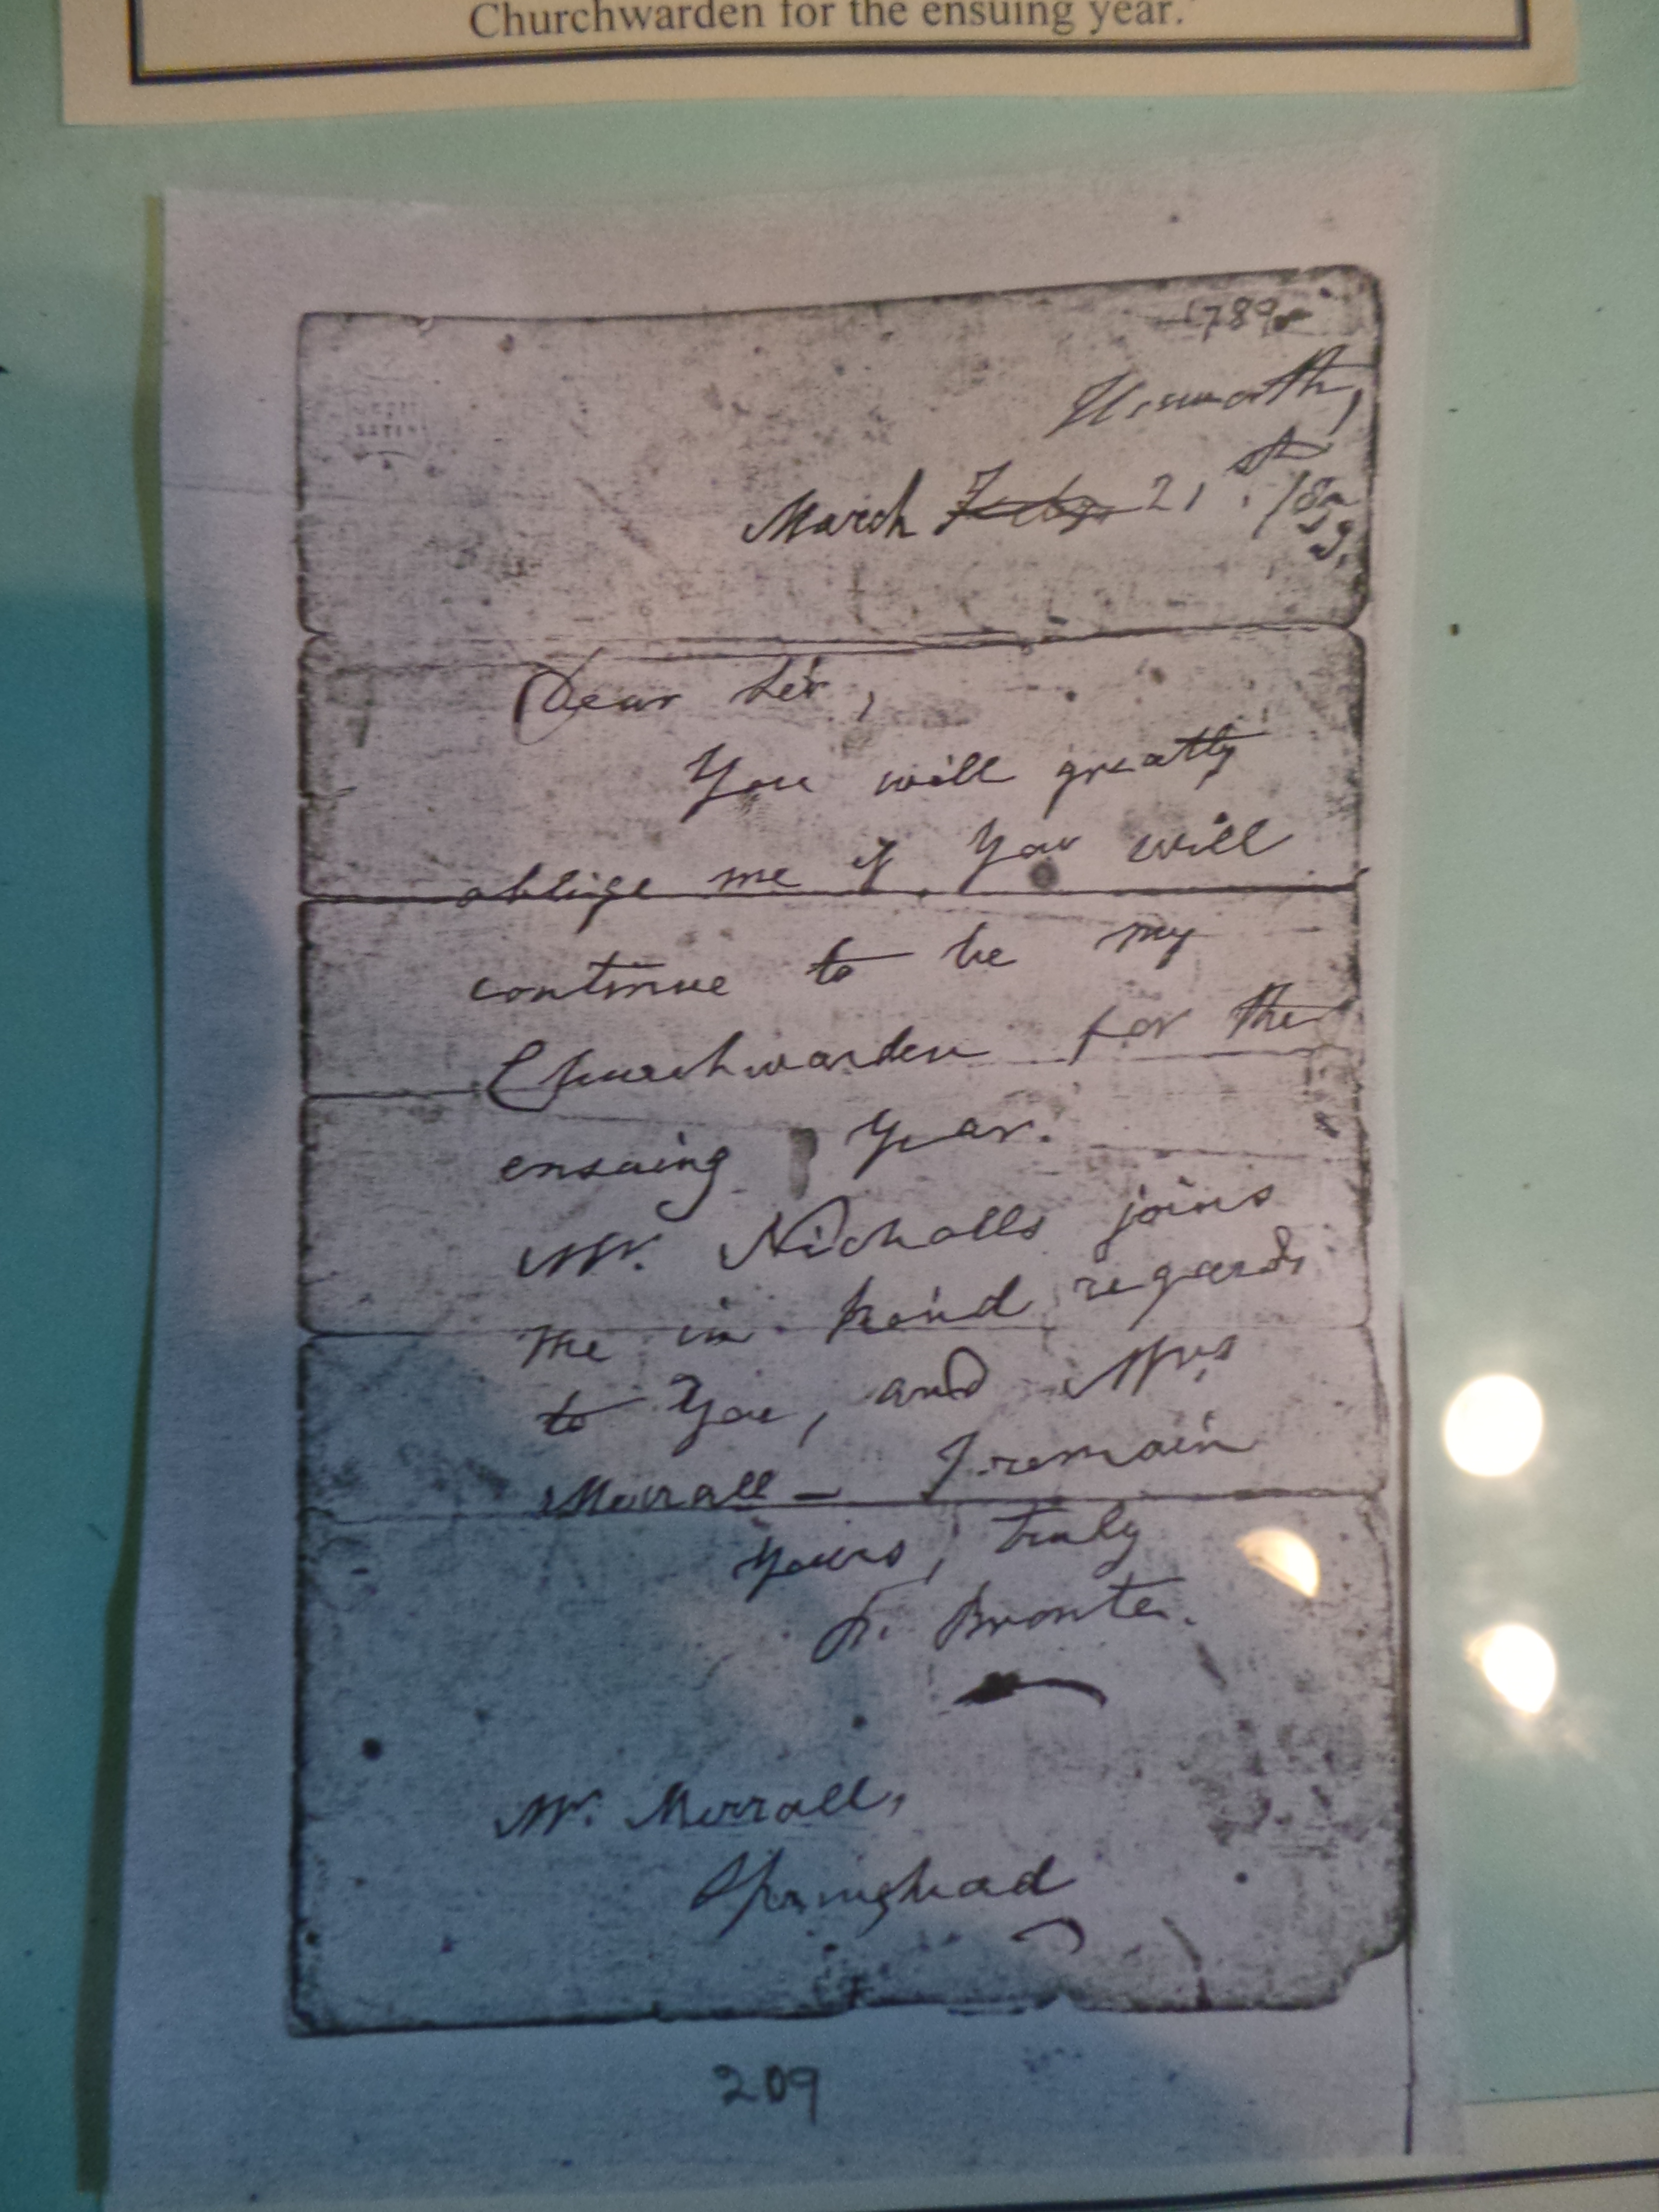 Churchwarden for the ensuing year.'
1789
Haworth,
March Feby 21st. 185
9.
Dear Sir,
You will greatly
oblige me if You will
continue to be my
Churchwarden for the
ensuing Year.
Mr. Nicholls joins
me in kind regards
to You, and Mrs
Merrall — I remain
Yours, truly
P. Bronte.
Mr. Merrall,
Springhead
209